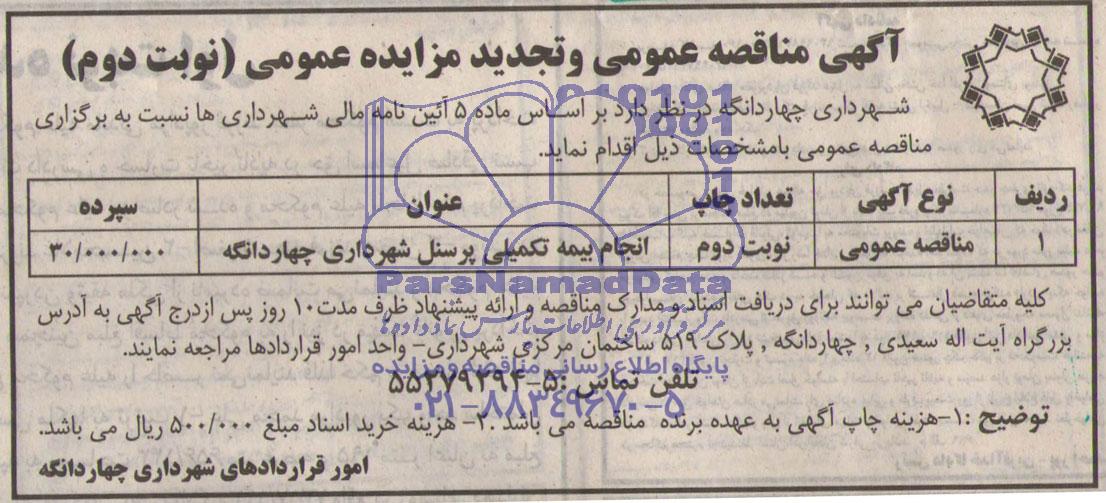 آگهی مناقصه عمومی وتجدید مزایده عمومی (نوبت دوم)
شهرداری چهاردانگه در نظر دارد بر اساس ماده ۵ آئین نامه مالی شهرداری ها نسبت به برگزاری
مناقصه عمومی بامشخصات ذیل اقدام نماید.
ردیف نوع آگهی تعداد چاپ عنوان سپرده
۱ مناقصه عمومی نوبت دوم انجام بیمه تکمیلی پرسنل شهرداری چهاردانگه ۳۰/۰۰۰/۰۰۰
ParsNamadData
کلیه متقاضیان می توانند برای دریافت اسناد و مدارک مناقصه و ارائه پیشنهاد ظرف مدت۱۰ روز پس ازدرج آگهی به آدرس
مرکز فرآوری اطلاعات پارس نماد داده ها
بزرگراه آیت اله سعیدی , چهاردانگه , پلاک ۵۱۹ ساختمان مرکزی شهرداری- واحد امور قراردادها مراجعه نمایند.
پایگاه اطلاع رسانی مناقصه و مزایده
تلفن تماس :۵-۵۵۲۷۹۲۹۴
۰۲۱-۸۸۳۴۹۶۷۰-۵
توضیح :۱-هزینه چاپ آگهی به عهده برنده مناقصه می باشد .۲- هزینه خرید اسناد مبلغ ۵۰۰/۰۰۰ ریال می باشد.
امور قراردادهای شهرداری چهاردانگه